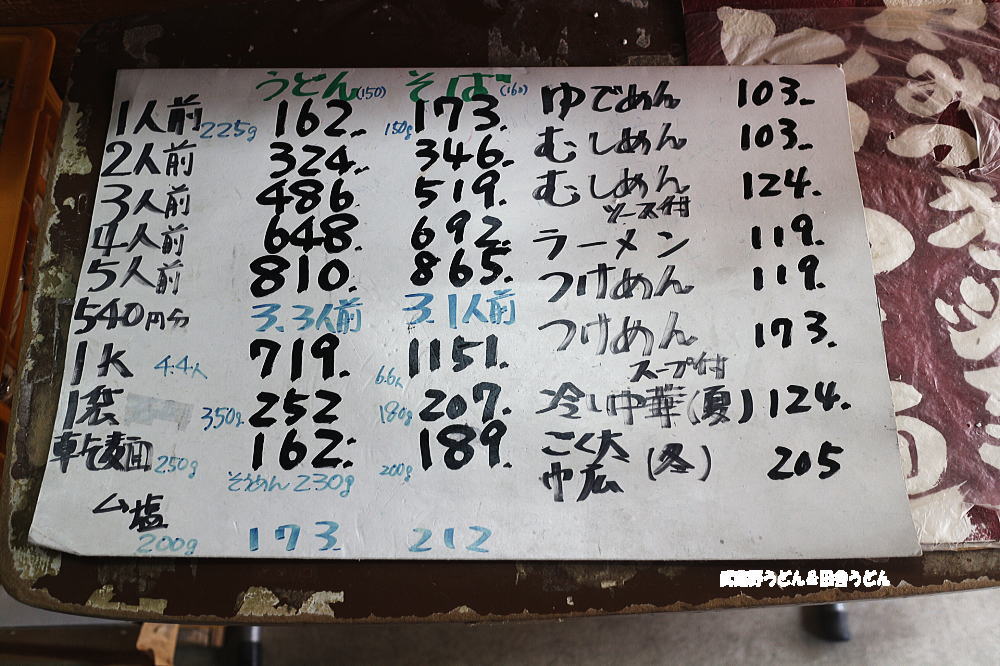 うどん(150) そば(160)
1人前 225g 162. 150g 173.
2人前 324. 346.
3人前 486 519.
4人前 648. 692.
5人前 810. 865.
540円分 3.3人前 3.1人前
1K 4.4人 719. 6.6人 1151.
1袋 350g 252 180g 207.
乾麺 250g 162. 200g 189.
そうめん230g
ム塩
200g 173 212
ゆでめん 103.
むしめん 103.
むしめん 124.
ソース付
ラーメン 119.
つけめん 119.
つけめん 173.
スープ付
冷し中華(夏) 124.
ごく太
巾広 (冬) 205
武蔵野うどん&田舎うどん